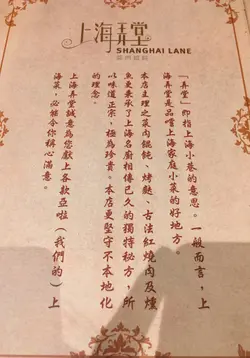 上海弄堂
SHANGHAI LANE
「弄堂」即指上海小巷的意思。一般而言，上
海弄堂是品嚐上海家庭小菜的好地方。
本店主理之菜肉餛飩、烤麩、古法紅燒肉及燻
魚更秉承了上海名廚相傳已久的獨特秘方，所
以味道正宗，極為珍貴。本店更堅守不本地化
的理念。
上海弄堂誠意為您獻上各款亞啦（我們的）上
海菜，必能令你稱心滿意。